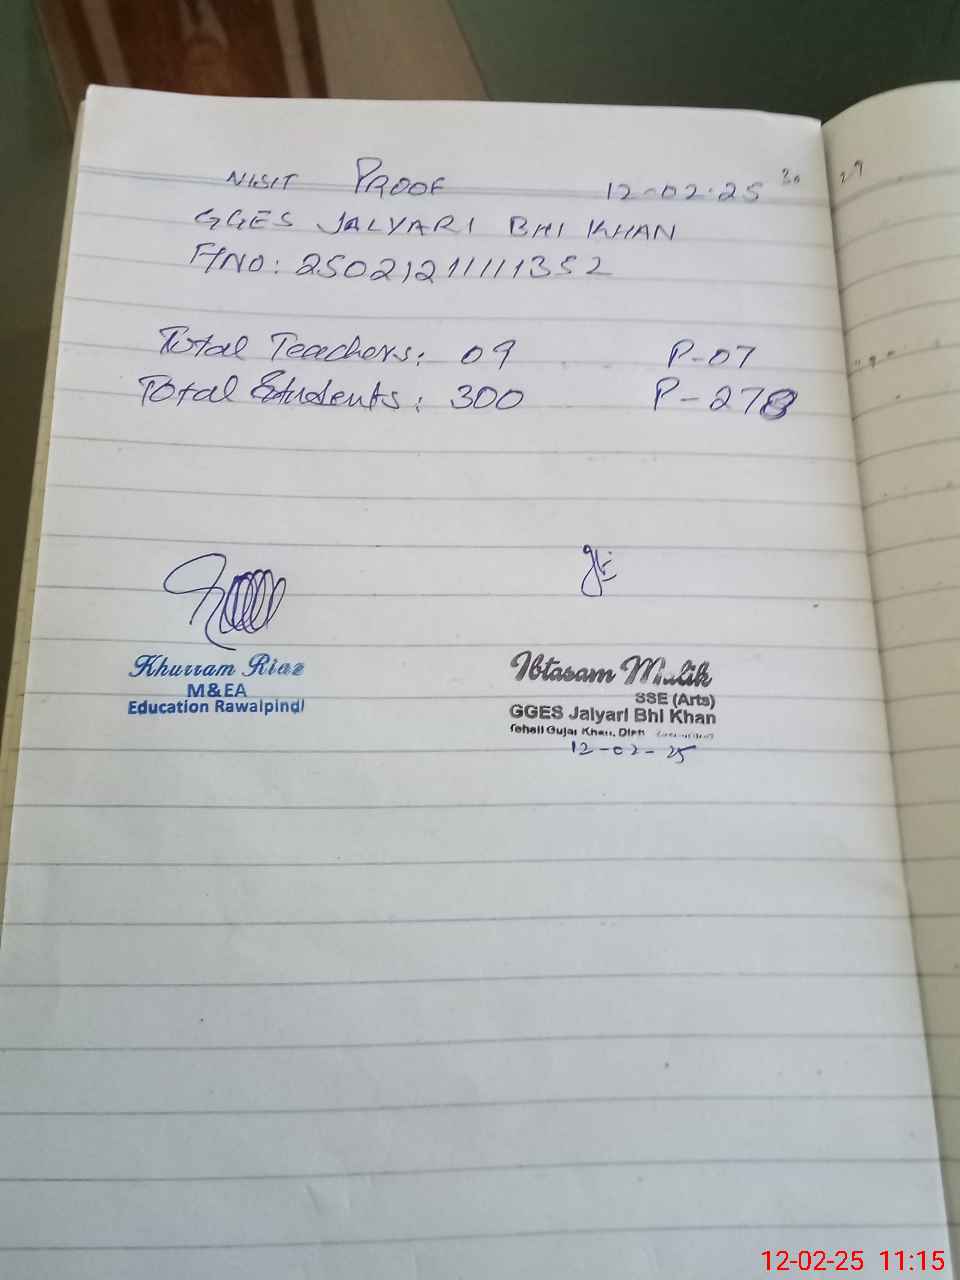 VISIT PROOF 12-02-25 30 29
GGES JALYARI BHI KHAN
F/NO: 2502121111352
Total Teachers: 09 P-07
Total Students: 300 P-278
Khurram Riaz
M&EA
Education Rawalpindi
Ibtasam Malik
SSE (Arts)
GGES Jalyari Bhi Khan
Tehsil Gujar Khan, Distt
12-02-25
12-02-25 11:15